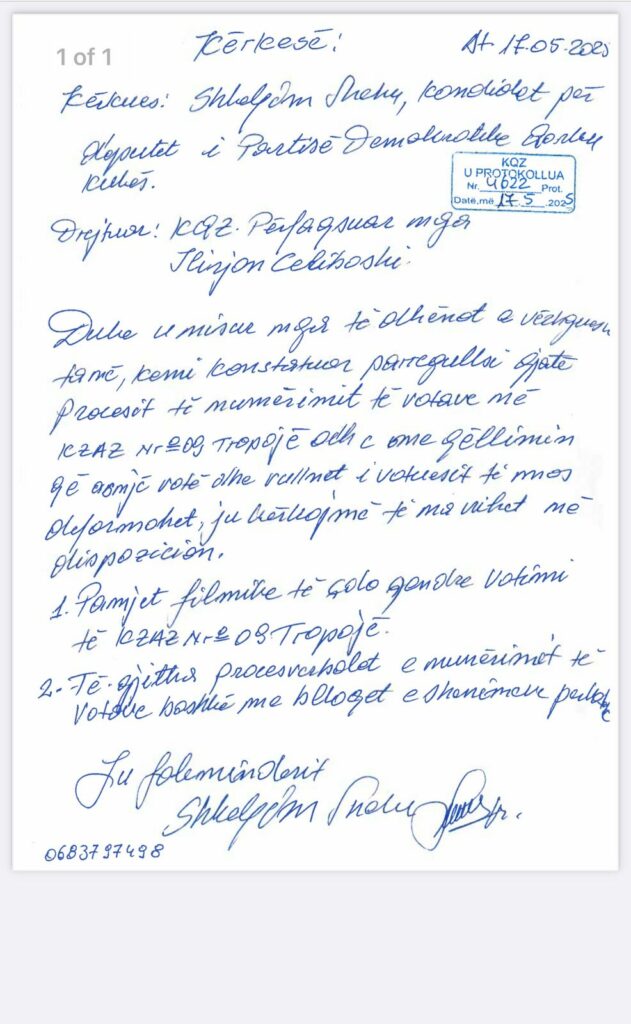 1 of 1
Kërkesë:
Dt 17.05.2025
Kërkues: Shkelqim Shehu, kondidat për
deputet i Partisë Demokratike Qarku
Kukës.
KQZ
U PROTOKOLLUA
Nr. 4622 Prot.
Datë,më 17.5 2025
Drejtuar: KQZ. Përfaqsuar nga
Ilirjan Celibashi.
Duke u nisur nga të dhënat e vëzhguesve
tanë, kemi konstatuar parregullsi gjatë
Procesit të numërimit të votave në
KZAZ Nr º 09 Tropojë dhe me qëllimin
që asnjë votë dhe vullnet i votuesit të mos
deformohet, ju kërkojmë të na vihet në
dispozicion.
1. Pamjet filmike të çdo qendre votimi
të KZAZ Nr º 09 Tropojë.
2.- Të gjitha procesverbalet e numërimit të
votave bashkë me blloqet e shënimeve
Ju falemnderit
Shkelqim Shehu
0683797498